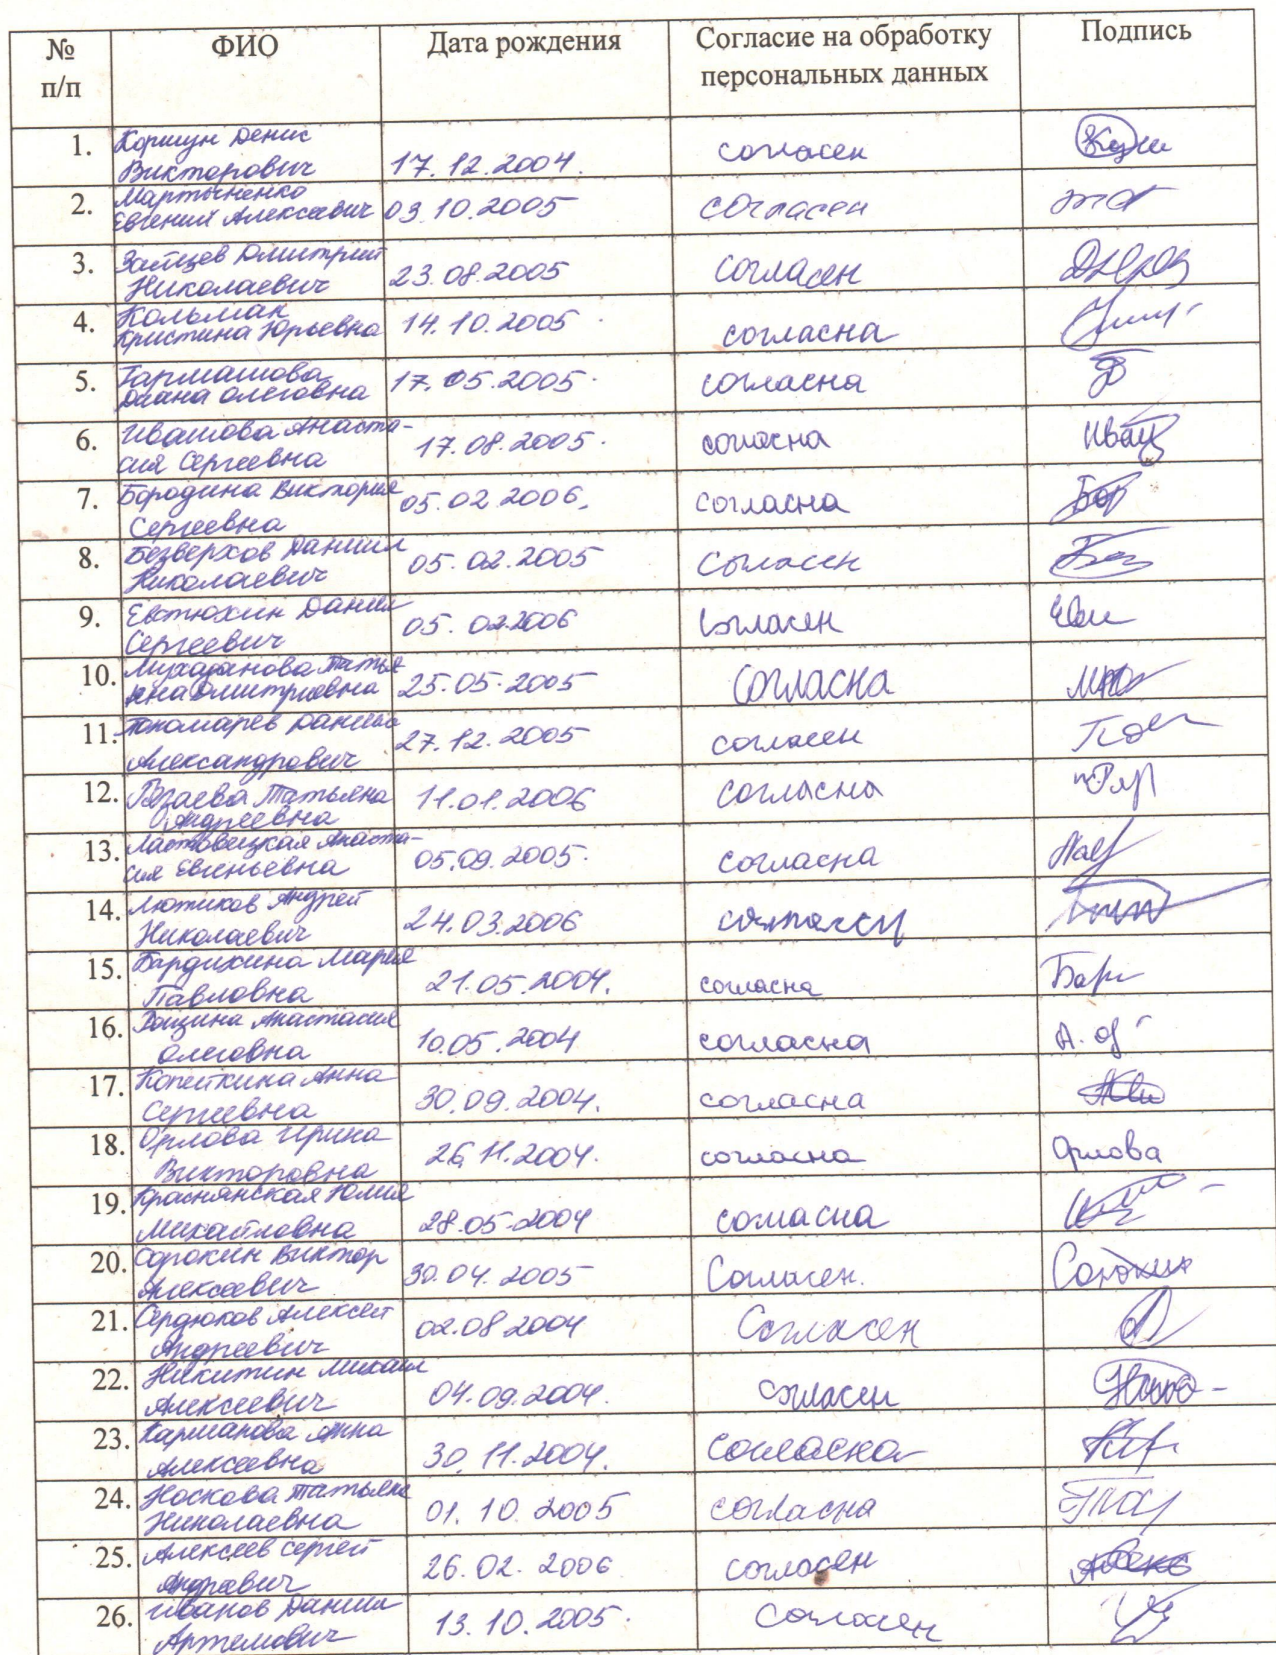 № п/п ФИО Дата рождения Согласие на обработку персональных данных Подпись
1. Коршун Денис Викторович 17.12.2004. согласен
2. Мартыненко Евгений Алексеевич 03.10.2005 согласен
3. Зайцев Дмитрий Николаевич 23.08.2005 согласен
4. Кальмак Кристина Юрьевна 14.10.2005 согласна
5. Гармашова Диана Олеговна 17.05.2005. согласна
6. Ивашова Анаста-сия Сергеевна 17.08.2005. согласна Иваш
7. Бородина Виктория Сергеевна 05.02.2006. согласна Бор
8. Безверхов Даниил Николаевич 05.02.2005 согласен
9. Евтюхин Данил Сергеевич 05.02.2006 согласен
10. Татьяна Дмитриевна 25.05.2005 согласна
11. Пономарев Данила Александрович 27.12.2005 согласен
12. Татьяна Андреевна 11.01.2006 согласна
13. Ластовецкая Анаста-сия Евгеньевна 05.09.2005. согласна
14. Лютиков Андрей Николаевич 24.03.2006
15. Бардихина Мария Павловна 21.05.2004. согласна Бар
16. Рощина Анастасия Олеговна 10.05.2004 согласна
17. Копейкина Анна Сергеевна 30.09.2004. согласна
18. Орлова Ирина Викторовна 26.11.2004. согласна Орлова
19. Краснянская Юлия Михайловна 28.05.2004 согласна
20. Сорокин Виктор Алексеевич 30.04.2005 Согласен. Сорокин
21. Сердюков Алексей Андреевич 02.08.2004 Согласен
22. Никитин Михаил Алексеевич 04.09.2004. согласен
23. Карманова Анна Алексеевна 30.11.2004. согласна
24. Носкова Татьяна Николаевна 01.10.2005 согласна
25. Алексеев Сергей Андреевич 26.02.2006 согласен
26. Иванов Даниил Артемович 13.10.2005. Согласен